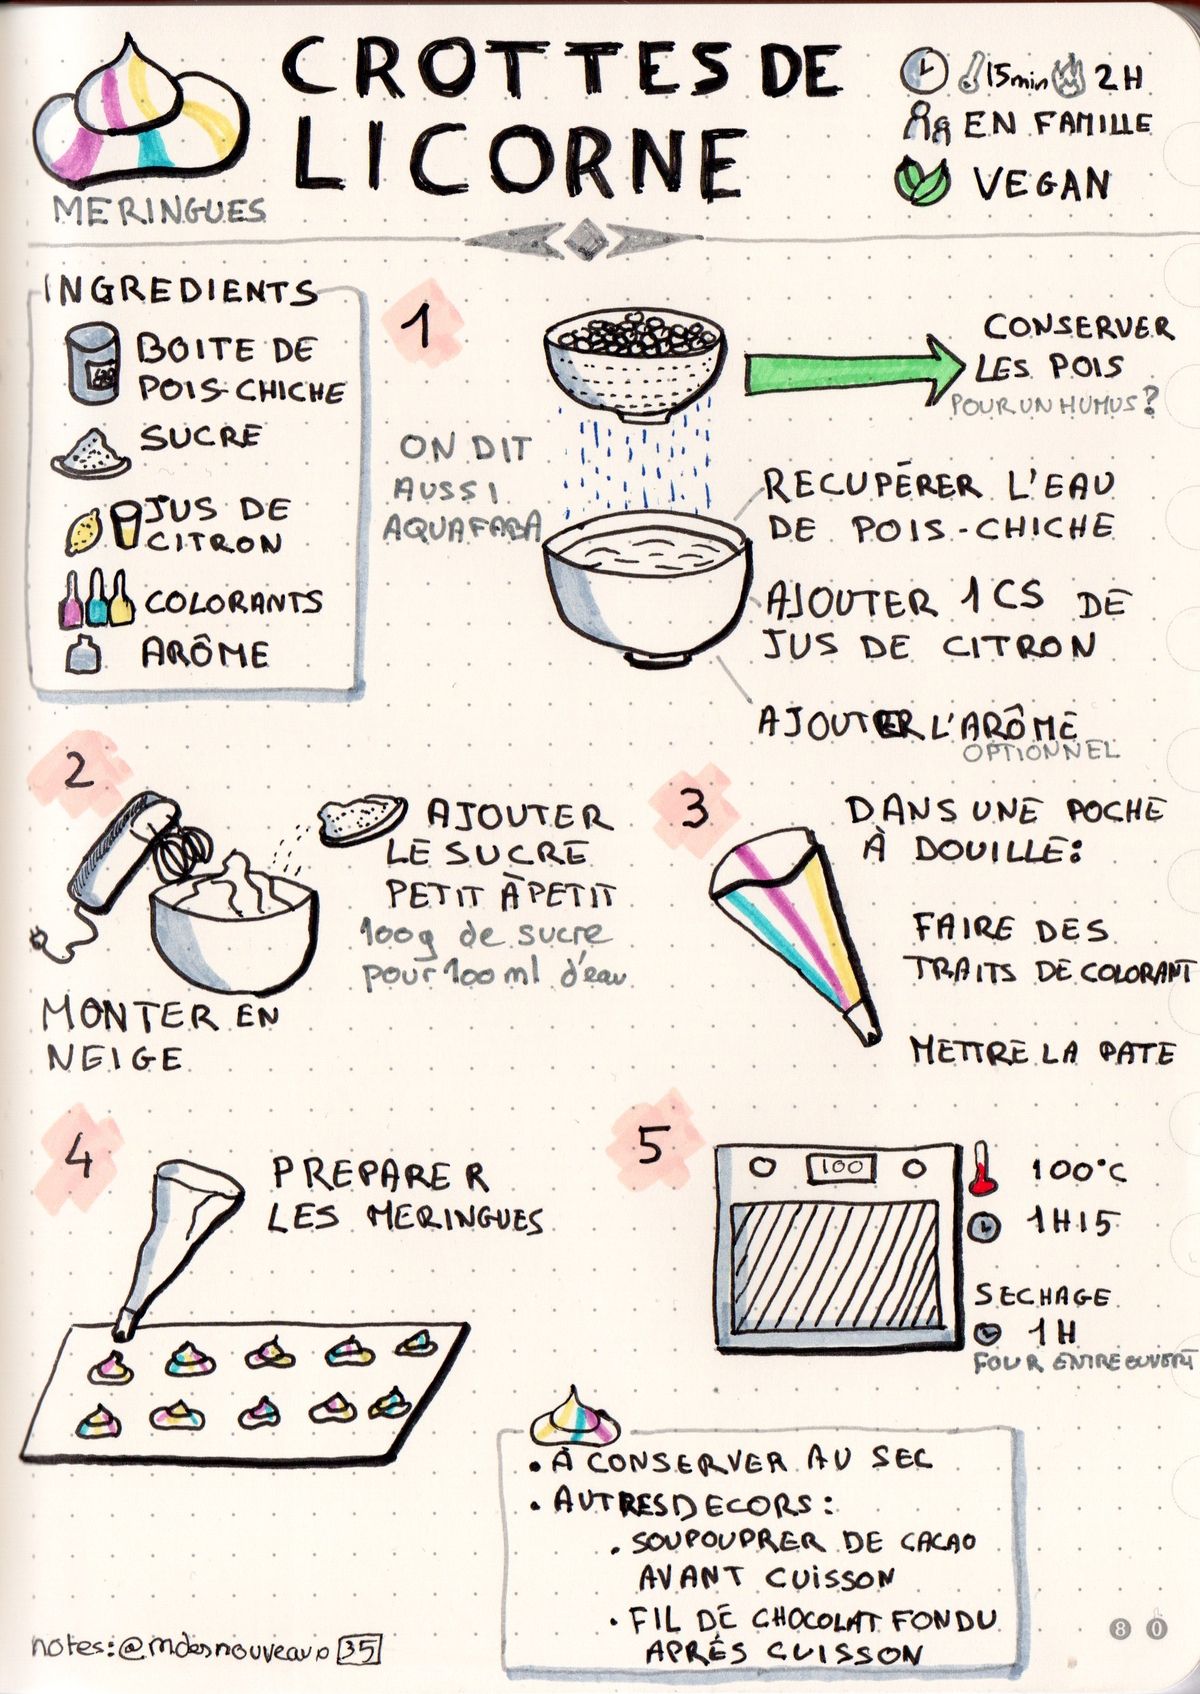 CROTTES DE
LICORNE
15min 2H
EN FAMILLE
VEGAN
MERINGUES
INGREDIENTS
BOITE DE
POIS-CHICHE
SUCRE
JUS DE
CITRON
COLORANTS
ARÔME
1
CONSERVER
LES POIS
POUR UN HUMUS?
ON DIT
AUSSI
AQUAFABA
RECUPÉRER L'EAU
DE POIS-CHICHE
AJOUTER 1 CS DE
JUS DE CITRON
AJOUTER L'ARÔME
OPTIONNEL
2
AJOUTER
LE SUCRE
PETIT À PETIT
100g de sucre
pour 100 ml d'eau
MONTER EN
NEIGE
3
DANS UNE POCHE
À DOUILLE:
FAIRE DES
TRAITS DE COLORANT
METTRE LA PATE
4
PREPARER
LES MERINGUES
5
100
100°C
1H15
SECHAGE
1H
FOUR ENTREOUVERT
• À CONSERVER AU SEC
• AUTRES DECORS:
• SOUPOUPRER DE CACAO
AVANT CUISSON
• FIL DE CHOCOLAT FONDU
APRÉS CUISSON
notes: @mdesnouveaux 35
80